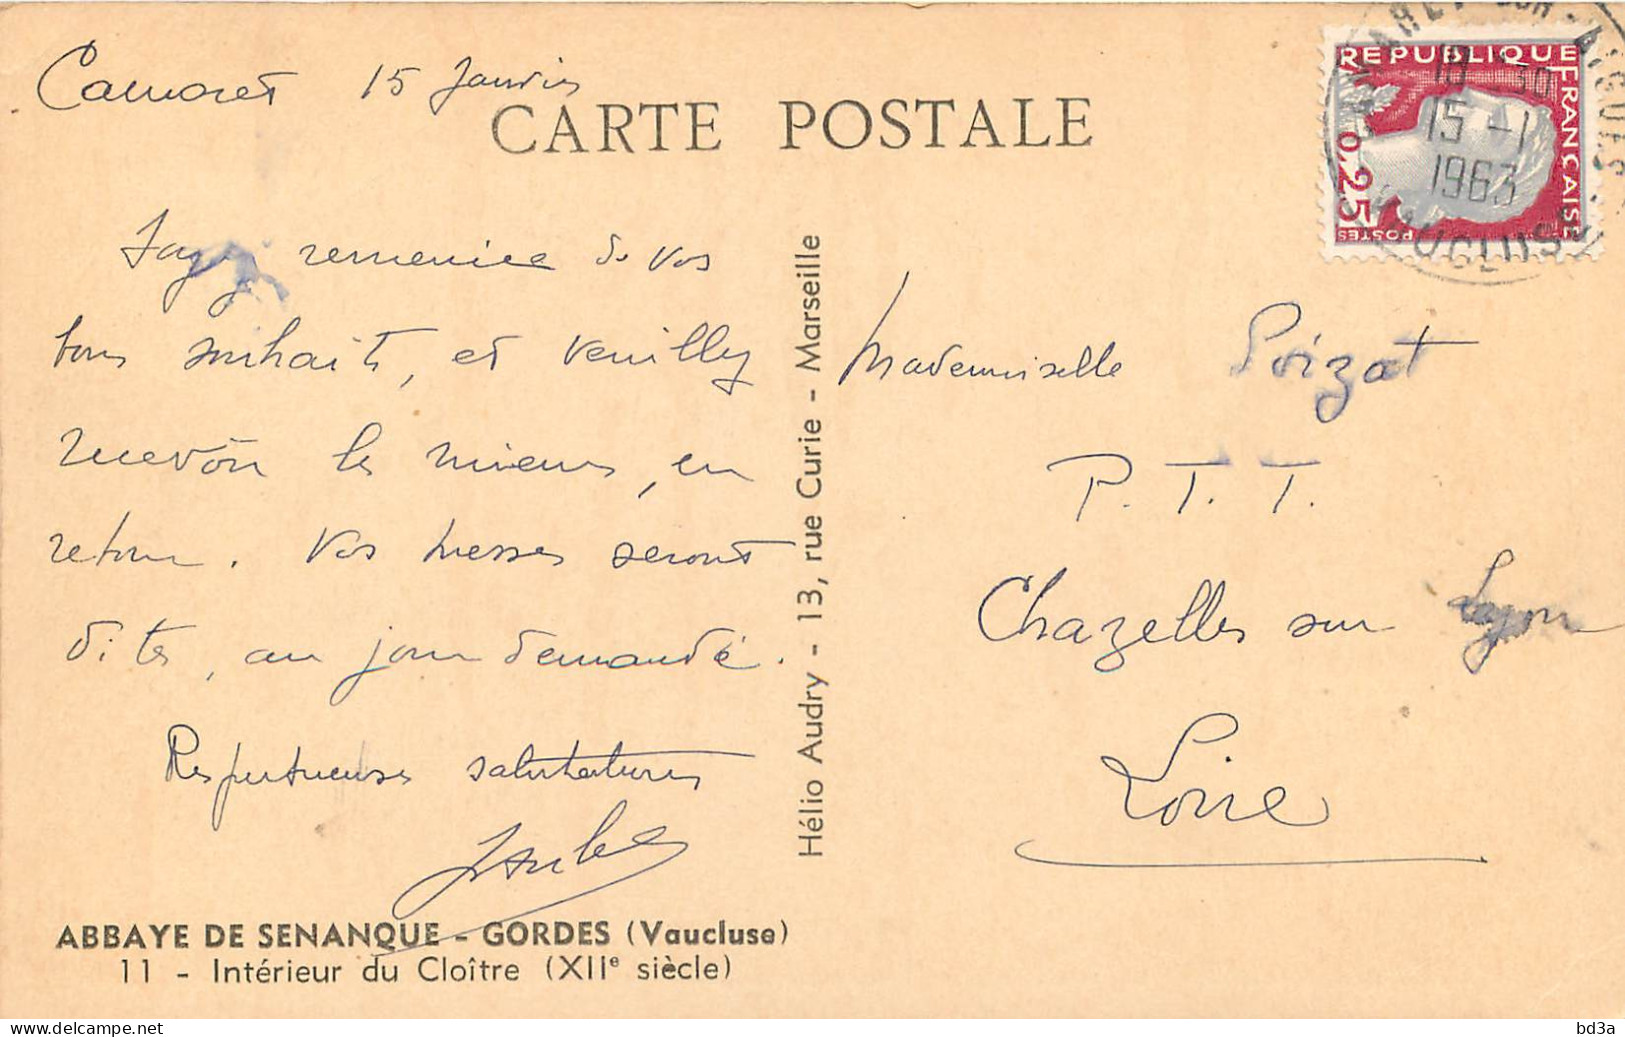 Camaret 15 Janvier
CARTE POSTALE
Soyez remerciée de vos
bons souhaits, et veuillez
recevoir les miens, en
retour. Vos messes seront
dites, au jour demandé.
Respectueuses salutations
ABBAYE DE SENANQUE - GORDES (Vaucluse)
11 - Intérieur du Cloître (XIIe siècle)
Hélio Audry - 13, rue Curie - Marseille
REPUBLIQUE
FRANÇAISE
0,25
POSTES
CAMARET-SUR-AIGUES
15 -1
1963
VAUCLUSE
Mademoiselle Poizat
P. T. T.
Chazelles sur Lyon
Loire
www.delcampe.net
bd3a